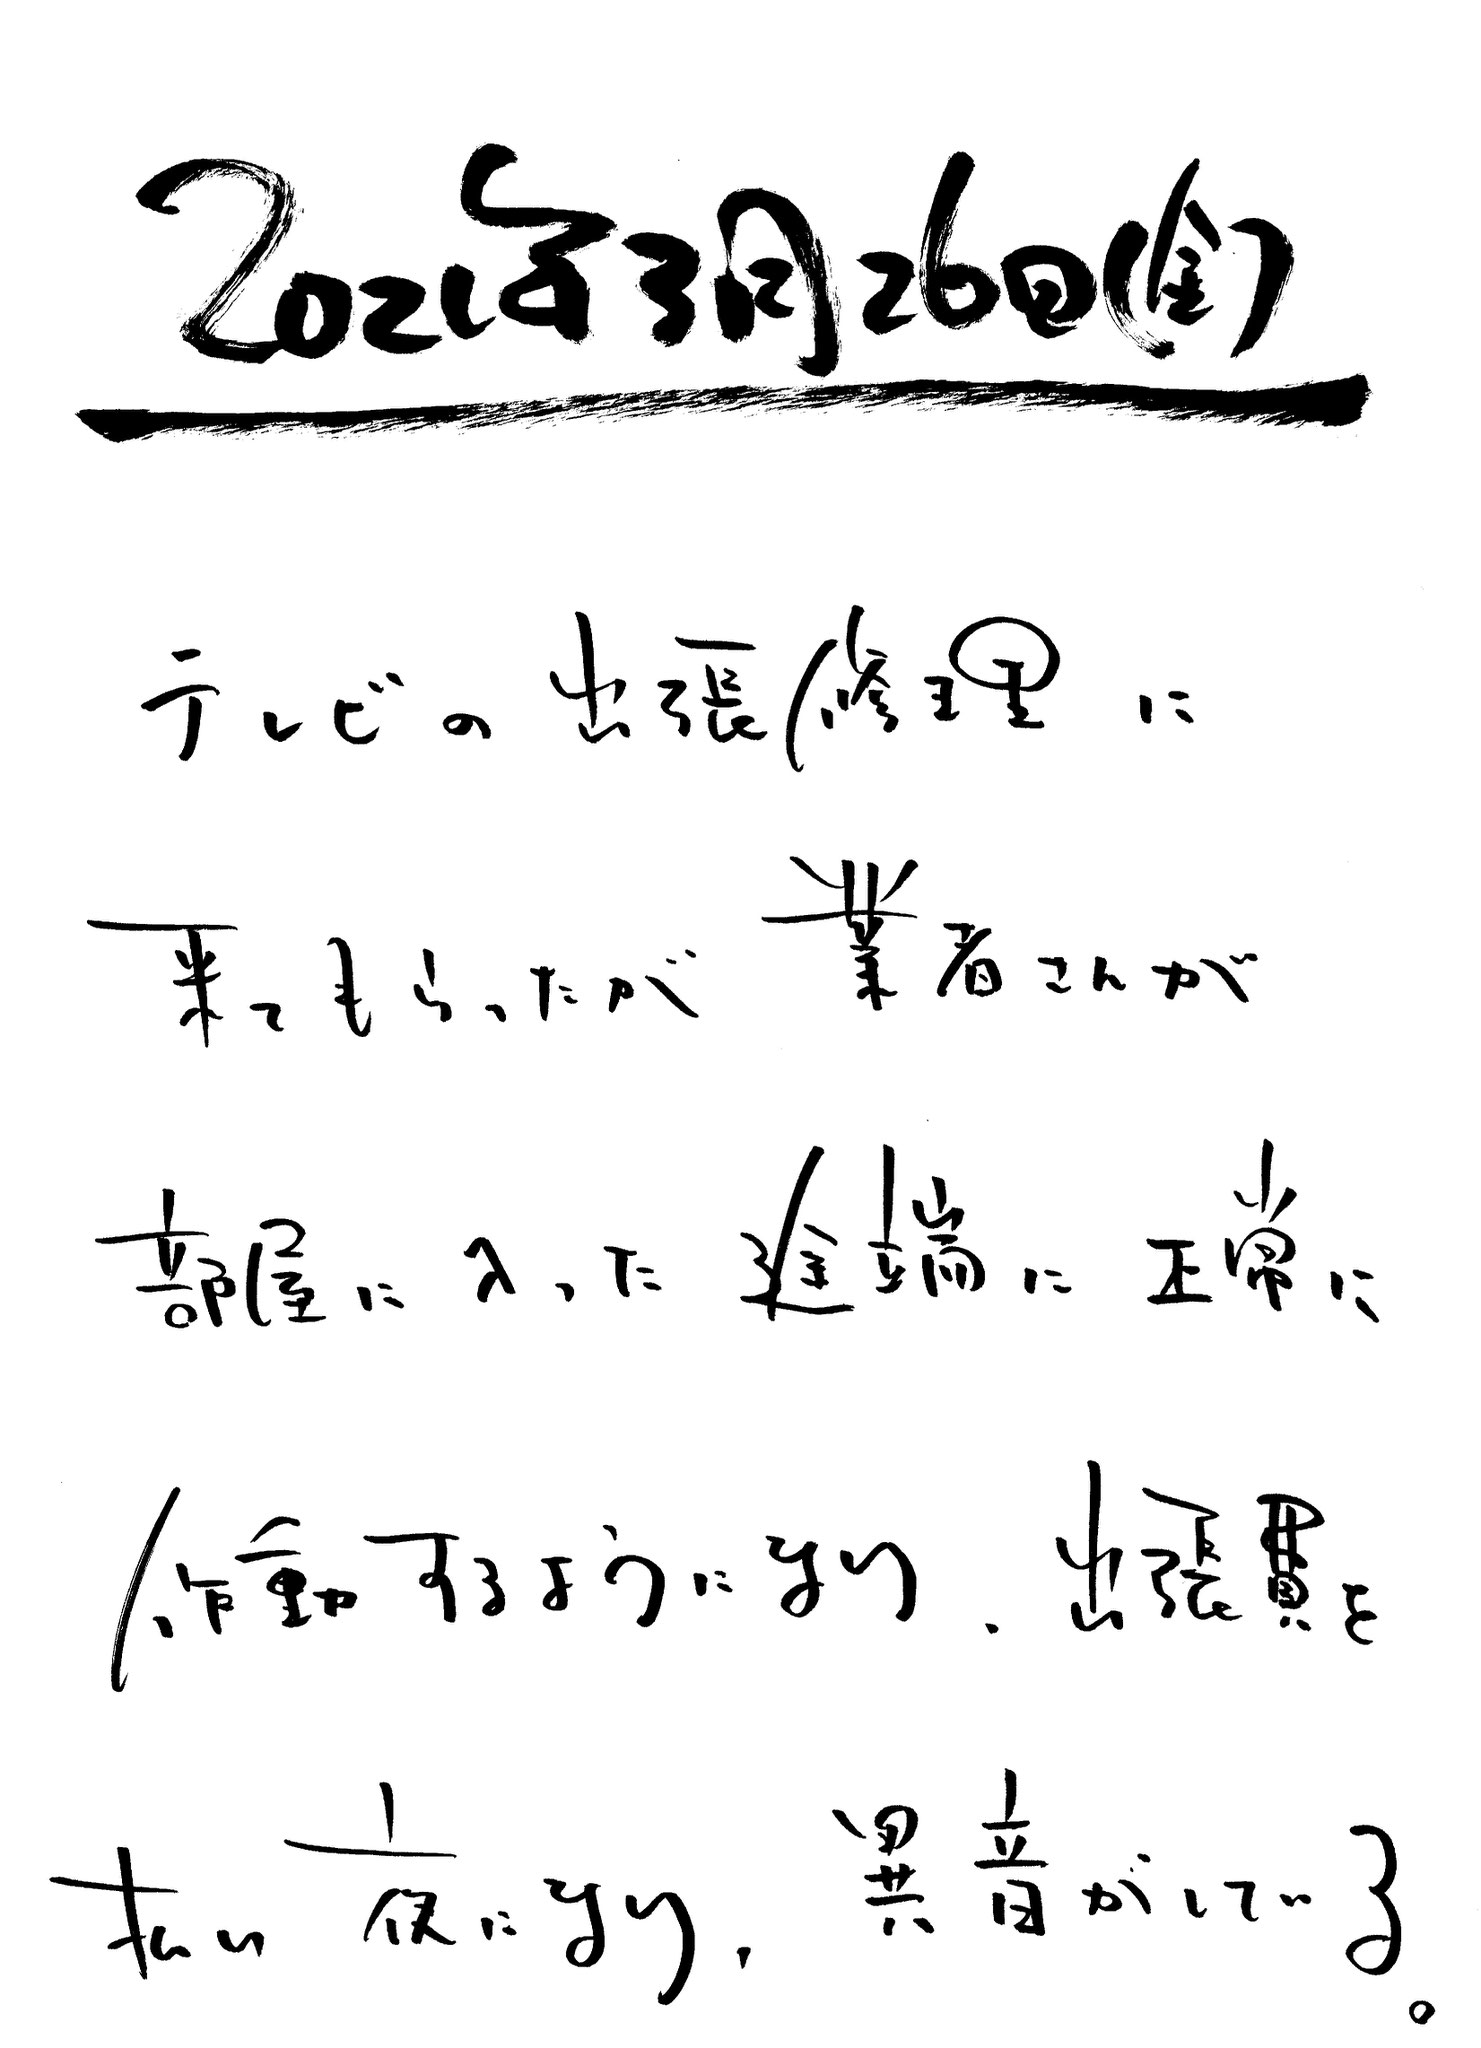 2021年3月26日(金)
テレビの出張修理に
来てもらったが業者さんが
部屋に入った途端に正常に
作動するようになり、出張費を
払い夜になり、異音がしている。